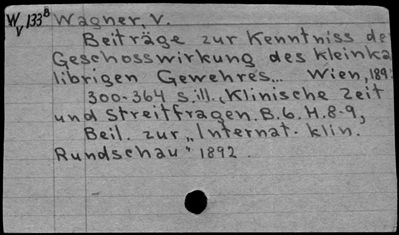 W V 133 B Wagner, V.
Beiträge zur Kenntniss de
Geschosswirkung des kleinka
librigen Gewehres... Wien, 189
300-364 S.ill. „Klinische Zeit
und Streitfragen. B.6. H.8-9,
Beil. zur „Internat. klin.
Rundschau" 1892.